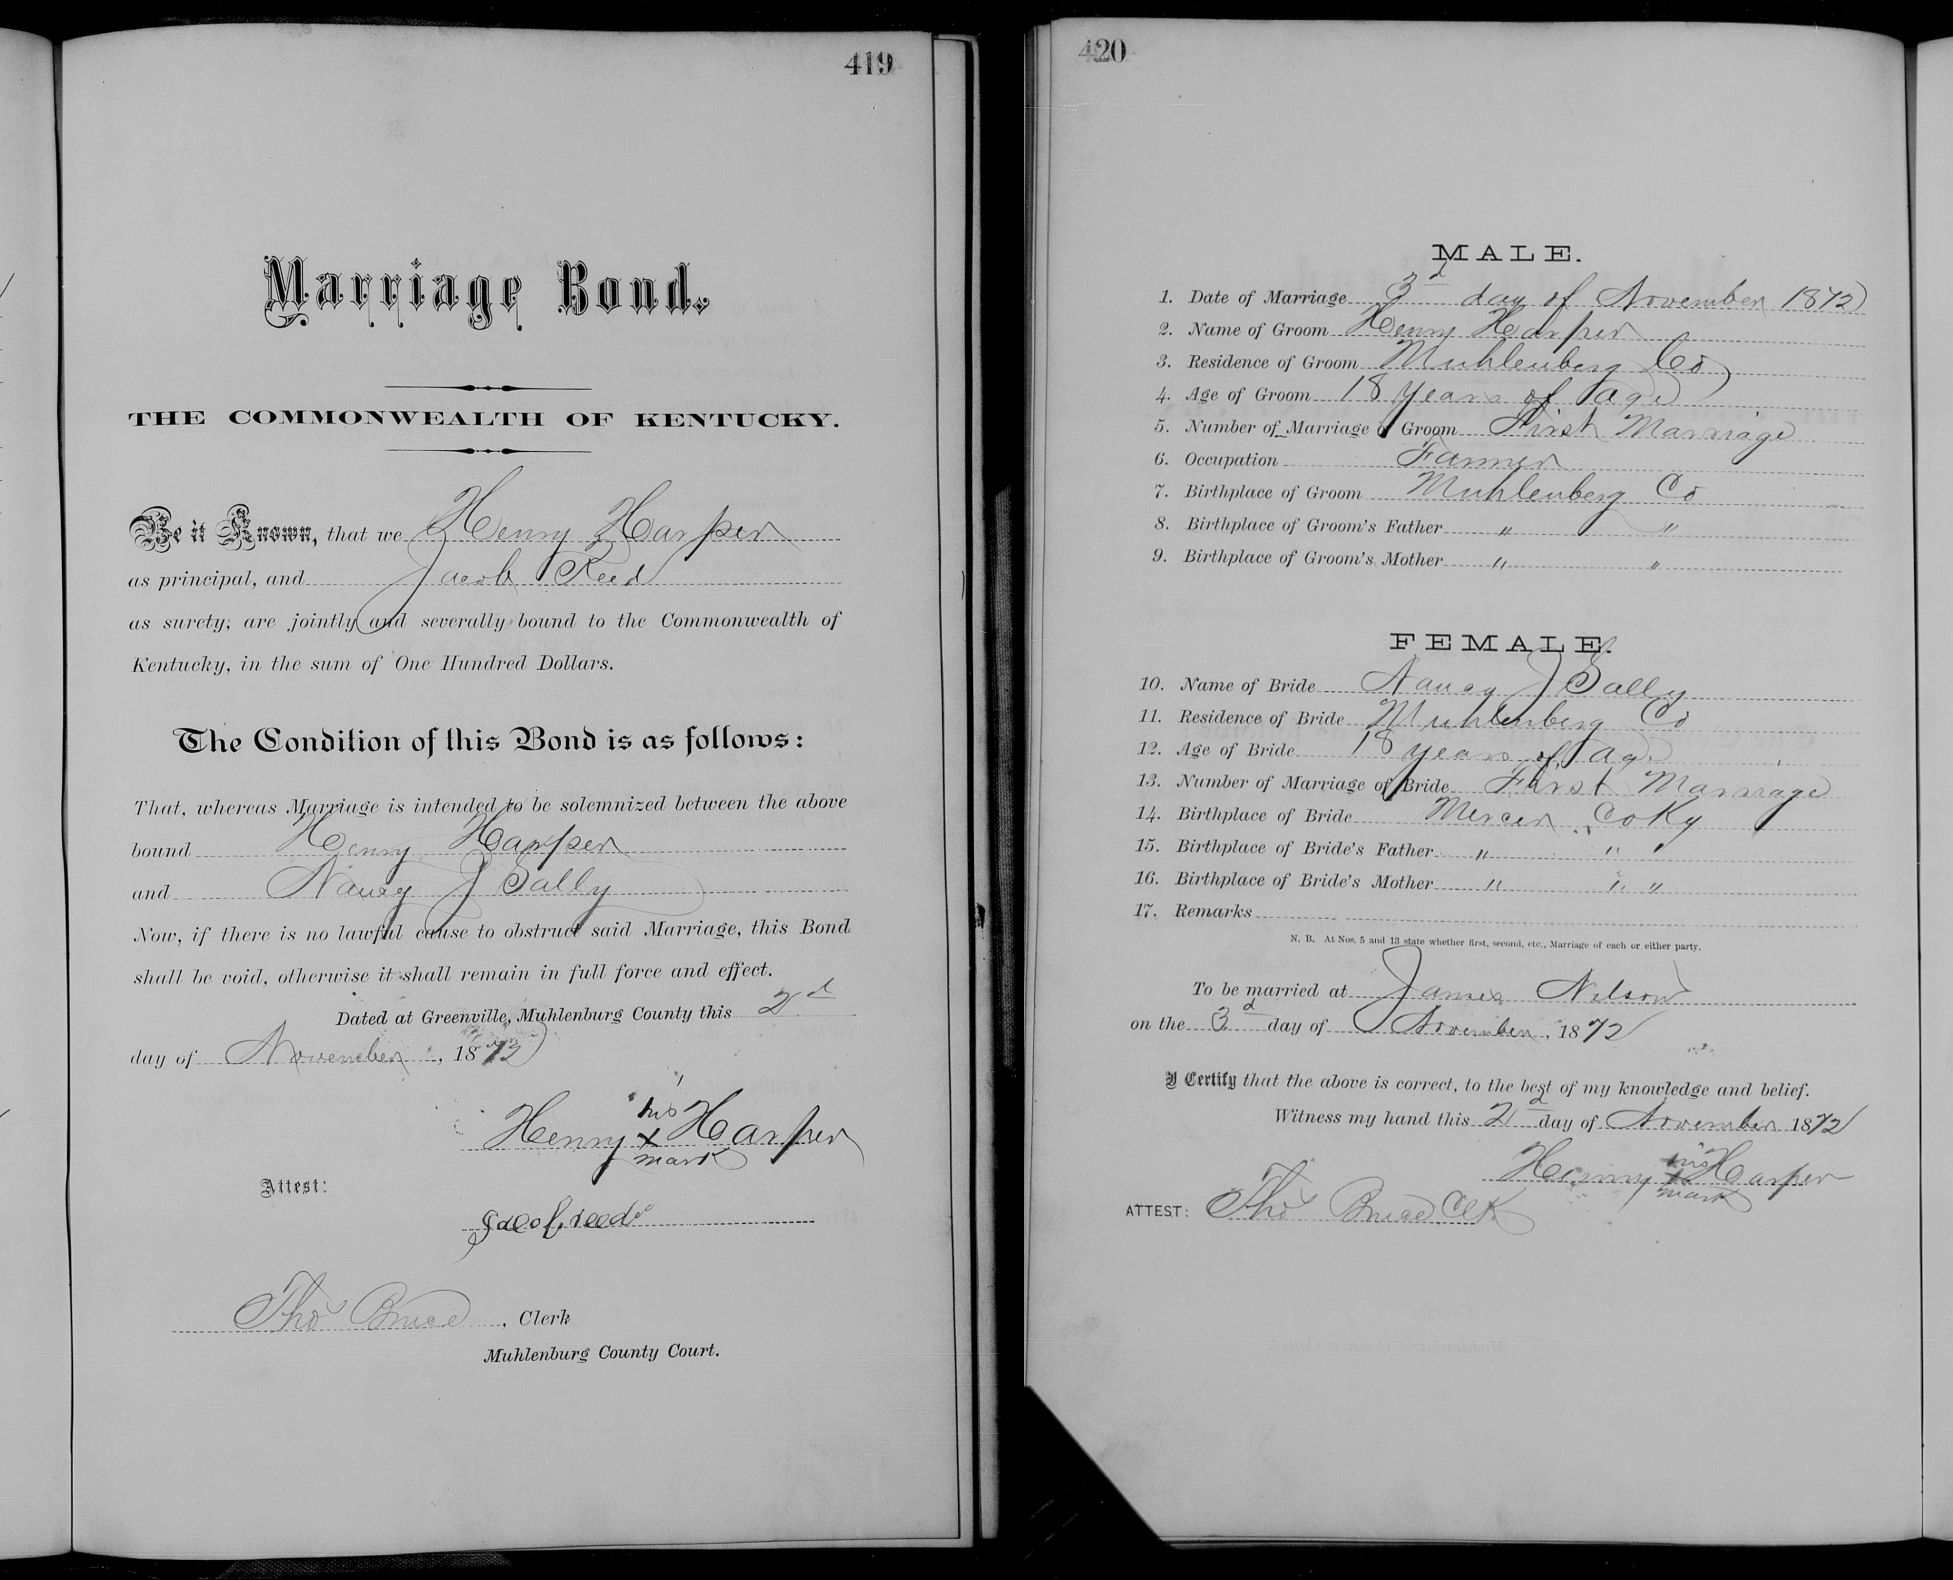 419
Marriage Bond.
THE COMMONWEALTH OF KENTUCKY.
Be it Known, that we Henry Harper
as principal, and Jacob Reed
as surety, are jointly and severally bound to the Commonwealth of
Kentucky, in the sum of One Hundred Dollars.
The Condition of this Bond is as follows:
That, whereas Marriage is intended to be solemnized between the above
bound Henry Harper
and Nancy J Sally
Now, if there is no lawful cause to obstruct said Marriage, this Bond
shall be void, otherwise it shall remain in full force and effect.
Dated at Greenville, Muhlenburg County this 2d
day of November, 1872
his
Henry X Harper
mark
Attest:
Jacob reed
Thos Bruce, Clerk
Muhlenburg County Court.
420
MALE.
1. Date of Marriage 3d day of November 1872
2. Name of Groom Henry Harper
3. Residence of Groom Muhlenberg Co
4. Age of Groom 18 years of age
5. Number of Marriage of Groom First Marriage
6. Occupation Farmer
7. Birthplace of Groom Muhlenberg Co
8. Birthplace of Groom's Father " "
9. Birthplace of Groom's Mother " "
FEMALE.
10. Name of Bride Nancy J Sally
11. Residence of Bride Muhlenberg Co
12. Age of Bride 18 years of age
13. Number of Marriage of Bride First Marriage
14. Birthplace of Bride Mercer Co Ky
15. Birthplace of Bride's Father " " "
16. Birthplace of Bride's Mother " " "
17. Remarks
N. B. At Nos. 5 and 13 state whether first, second, etc., Marriage of each or either party.
To be married at James Nelson
on the 3d day of November, 1872
I Certify that the above is correct, to the best of my knowledge and belief.
Witness my hand this 2d day of November 1872
his
Henry X Harper
mark
ATTEST: Thos Bruce Clk